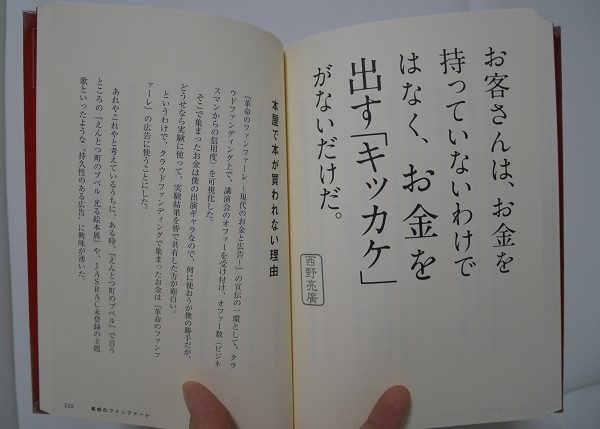 お客さんは、お金を
持っていないわけで
はなく、お金を
出す「キッカケ」
がないだけだ。
西野亮廣
本屋で本が買われない理由
『革命のファンファーレ 〜現代のお金と広告〜』の宣伝の一環として、クラ
ウドファンディング上で、講演会のオファーを受け付け、オファー数（ビジネ
スマンからの信用度）を可視化した。
そこで集まったお金は僕の出演ギャラなので、何に使おうが僕の勝手だが、
どうせなら実験に使って、実験結果を皆で共有した方が面白い。
というわけで、クラウドファンディングで集まったお金は『革命のファンフ
ァーレ』の広告に使うことにした。
あれやこれやと考えているうちに、ある時、『えんとつ町のプペル』で言う
ところの『えんとつ町のプペル 光る絵本展』や、JASRAC未登録の主題
歌といったような、“持久性のある広告”に興味が湧いた。
225 革命のファンファーレ